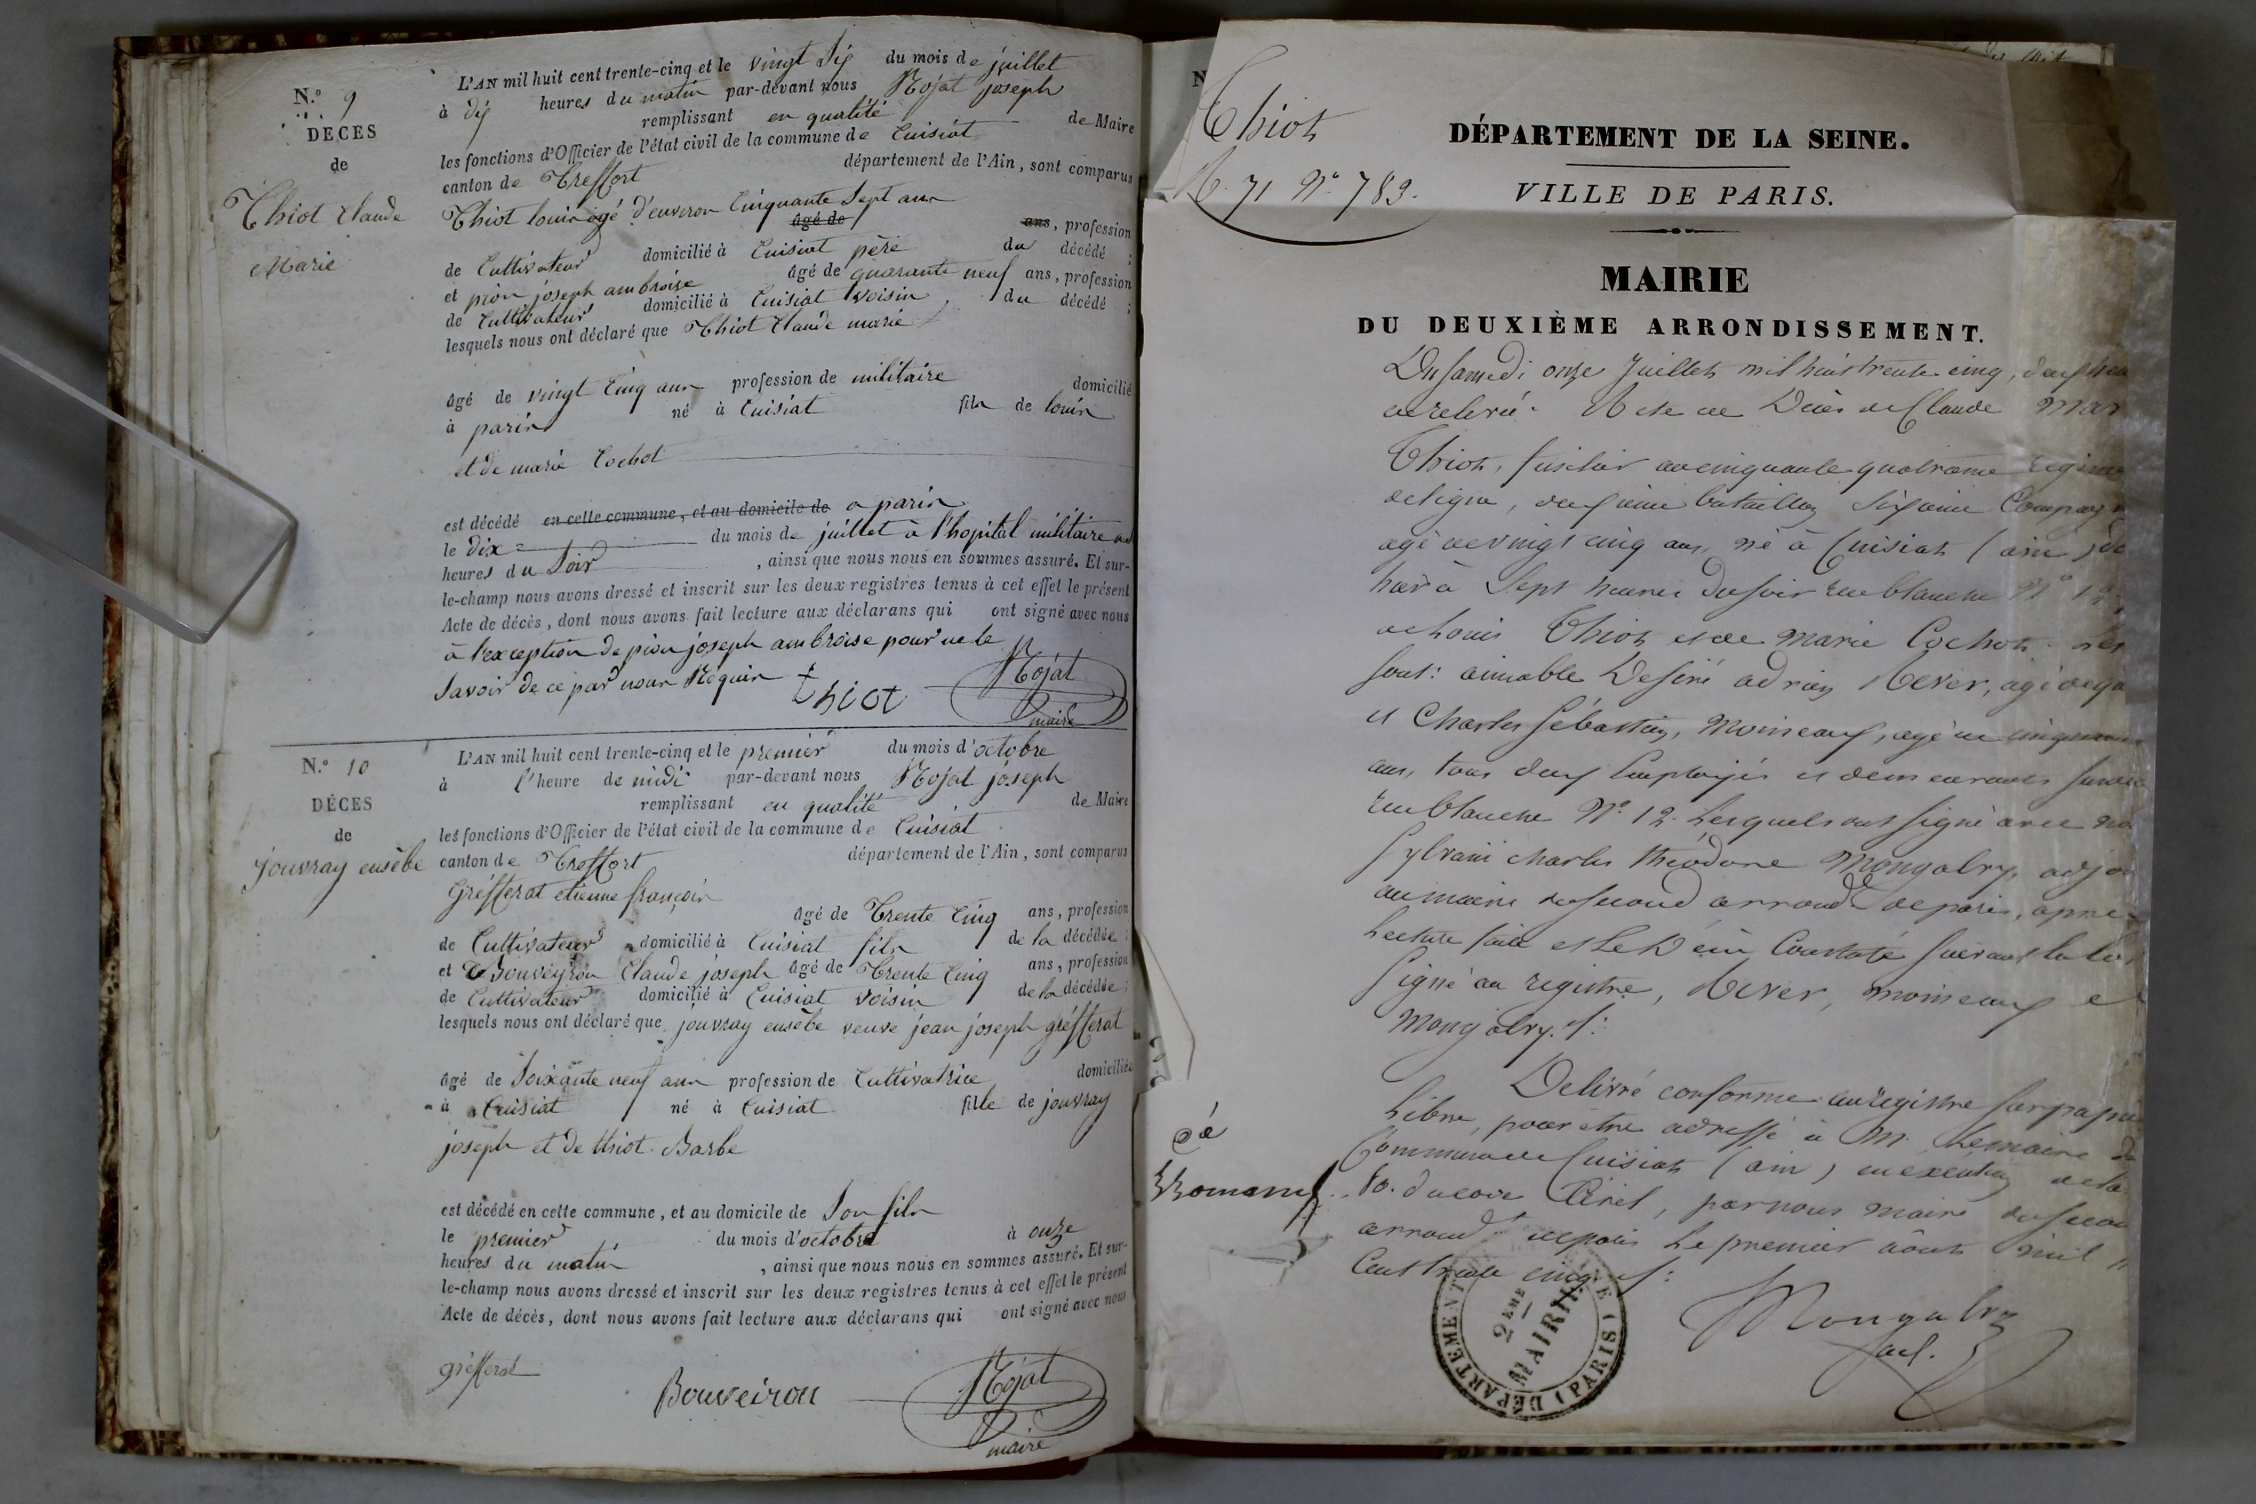 N.º 9
DÉCÈS
de
Thiot Claude
Marie
L'AN mil huit cent trente-cinq et le vingt six du mois de juillet
à dix heures du matin par-devant nous Rojat joseph
remplissant en qualité de Maire
les fonctions d'Officier de l'état civil de la commune de Cuisiat
canton de Treffort département de l'Ain, sont comparus
Thiot louis agé d'environ Cinquante Sept ans
âgé de ans, profession
de Cultivateur domicilié à Cuisiat père du décédé ;
et pion joseph ambroise âgé de quarante neuf ans, profession
de Cultivateur domicilié à Cuisiat voisin du décédé ;
lesquels nous ont déclaré que Thiot Claude marie
âgé de vingt Cinq ans profession de militaire domicilié
à paris né à Cuisiat fils de louis
et de marie Cochot
est décédé en cette commune, et au domicile de a paris
le dix du mois de juillet à l'hopital militaire
heures du Soir , ainsi que nous nous en sommes assuré. Et sur-
le-champ nous avons dressé et inscrit sur les deux registres tenus à cet effet le présent
Acte de décès, dont nous avons fait lecture aux déclarans qui ont signé avec nous
à l'exception de pion joseph ambroise pour ne le
Savoir de ce par nous Réquis
Thiot Rojat
maire
N.º 10
DÉCÈS
de
jouvray eusèbe
L'AN mil huit cent trente-cinq et le premier du mois d'octobre
à l'heure de midi par-devant nous Rojat joseph
remplissant en qualité de Maire
les fonctions d'Officier de l'état civil de la commune de Cuisiat
canton de Treffort département de l'Ain, sont comparus
Gréfferat etienne françois
âgé de Trente Cinq ans, profession
de Cultivateur domicilié à Cuisiat fils de la décédée ;
et Bouveyron Claude joseph âgé de Trente Cinq ans, profession
de Cultivateur domicilié à Cuisiat voisin de la décédée ;
lesquels nous ont déclaré que jouvray eusèbe veuve jean joseph gréfferat
âgé de Soixante neuf ans profession de Cultivatrice domiciliée
à Cuisiat né à Cuisiat fille de jouvray
joseph et de thiot Barbe
est décédé en cette commune, et au domicile de Son fils
le premier du mois d'octobre à onze
heures du matin , ainsi que nous nous en sommes assuré. Et sur-
le-champ nous avons dressé et inscrit sur les deux registres tenus à cet effet le présent
Acte de décès, dont nous avons fait lecture aux déclarans qui ont signé avec nous
gréfferat
Bouveiron Rojat
maire
N
Thiot
R. 71 Nº 789.
DÉPARTEMENT DE LA SEINE.
VILLE DE PARIS.
MAIRIE
DU DEUXIÈME ARRONDISSEMENT.
Du Samedi onze Juillet mil huit trente cinq, deux heu
de relevé. Acte de Décès de Claude Mar
Thiot, fusilier au cinquante quatrième regim
de ligne, deuxième bataillon Sixième Compagn
agé de vingt cinq ans, né à Cuisiat (ain)
hier à Sept heures du soir rue blanche Nº 12,
de Louis Thiot et de Marie Cochot.
sont: aimable Désiré adrien Rever, agé de
et Charles Sébastien Moineaux, agé de cinquan
ans, tous deux Employés et demeurants
rue blanche Nº 12. Lesquels ont Signé avec no
Sylvain Charles théodore Mongalvy, adjo
au maire du second arrondt de paris, après
Lecture faite et Le Décès Constaté suivant la loi
Signé au registre, Rever, moineaux e
Mongalvy.
Délivré conforme au registre sur papier
Libre, pour être adressé à Mr Le maire de
Commune de Cuisiat (ain) en exécution de
80. du code Civil, par nous maire du secon
arrondt de paris Le premier aôut mil
Cent trente cinq
Mongalvy
adj.
Romans
DÉPARTEMENT DE (PARIS)
2ÈME
MAIRIE